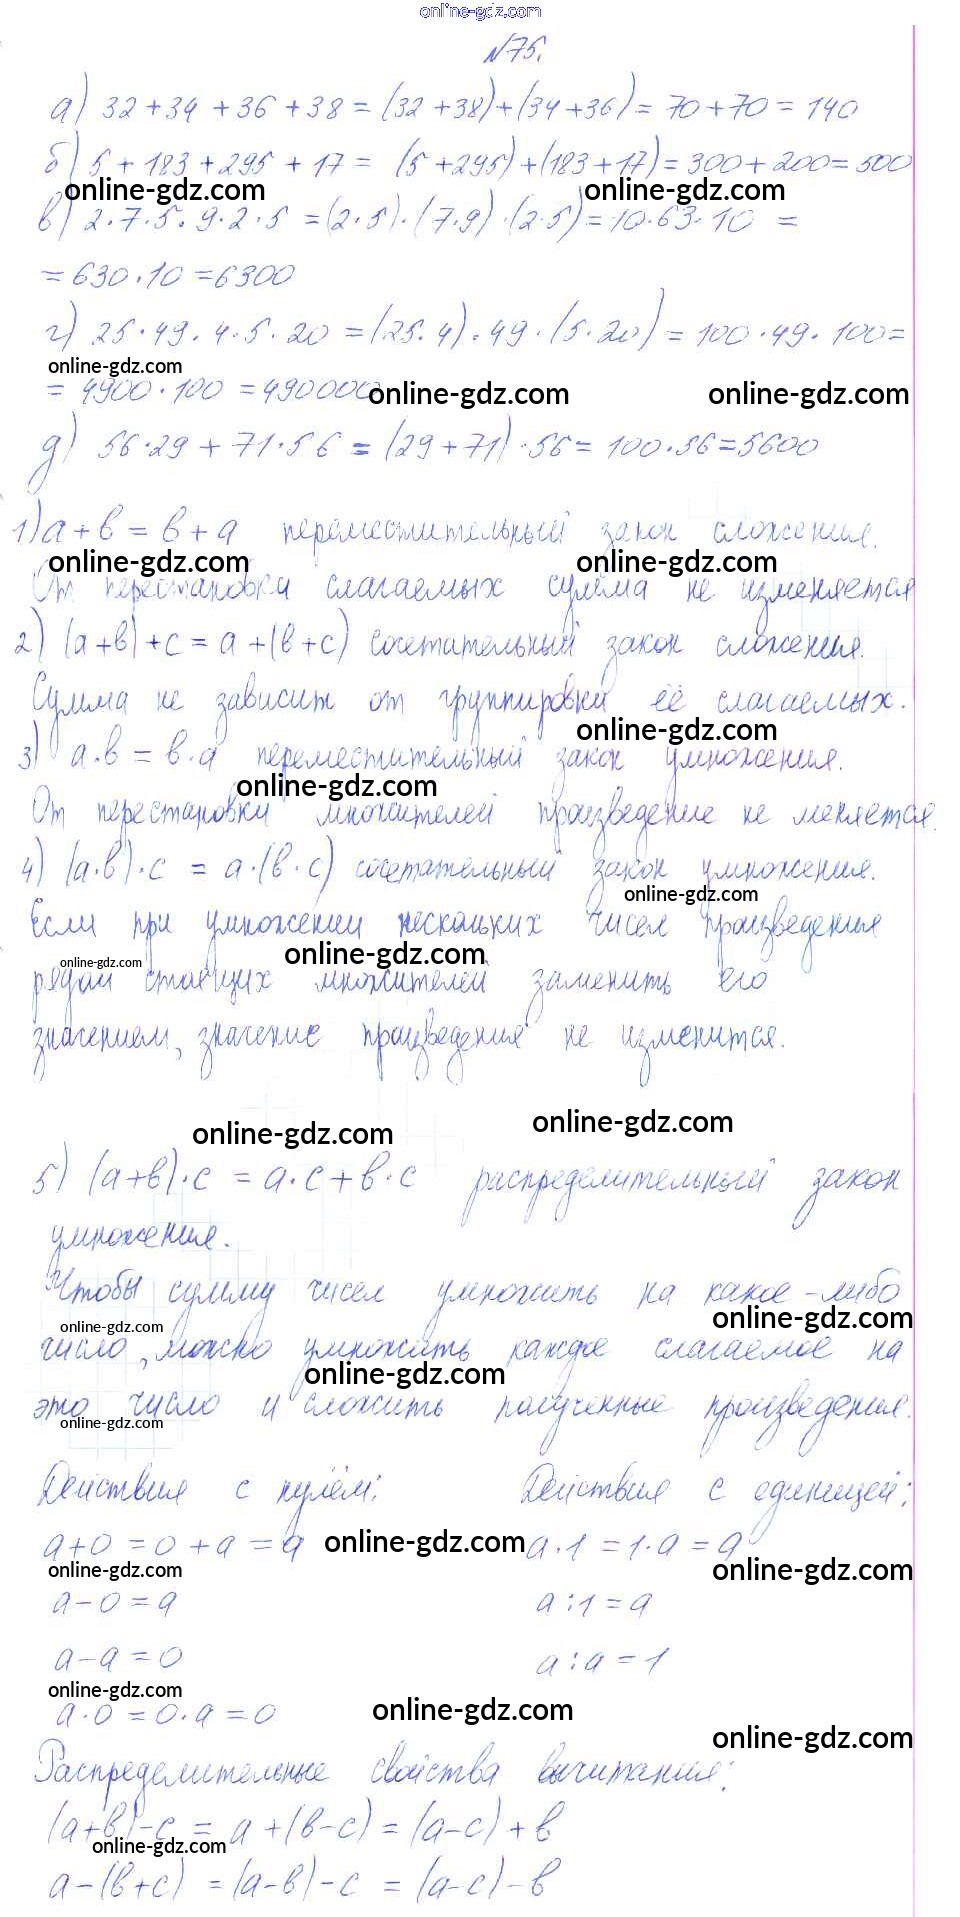 online-gdz.com
№75.
а) 32 + 34 + 36 + 38 = (32 + 38) + (34 + 36) = 70 + 70 = 140
б) 5 + 183 + 295 + 17 = (5 + 295) + (183 + 17) = 300 + 200 = 500
online-gdz.com online-gdz.com
в) 2·7·5·9·2·5 = (2·5)·(7·9)·(2·5) = 10·63·10 =
= 630·10 = 6300
г) 25·49·4·5·20 = (25·4)·49·(5·20) = 100·49·100 =
online-gdz.com
= 4900·100 = 490000
online-gdz.com online-gdz.com
д) 56·29 + 71·56 = (29 + 71)·56 = 100·56 = 5600
1) а + в = в + а переместительный закон сложения.
online-gdz.com online-gdz.com
От перестановки слагаемых сумма не изменяется
2) (а + в) + с = а + (в + с) сочетательный закон сложения.
Сумма не зависит от группировки её слагаемых.
online-gdz.com
3) а·в = в·а переместительный закон умножения.
online-gdz.com
От перестановки множителей произведение не меняется.
4) (а·в)·с = а·(в·с) сочетательный закон умножения.
online-gdz.com
Если при умножении нескольких чисел произведения
online-gdz.com online-gdz.com
рядом стоящих множителей заменить его
значением, значение произведения не изменится.
online-gdz.com online-gdz.com
5) (а+в)·с = а·с + в·с распределительный закон
умножения.
Чтобы сумму чисел умножить на какое-либо
online-gdz.com online-gdz.com
число, можно умножить каждое слагаемое на
online-gdz.com
это число и сложить полученные произведения.
online-gdz.com
Действия с нулём: Действия с единицей:
а + 0 = 0 + а = а online-gdz.com а·1 = 1·а = а
online-gdz.com online-gdz.com
а - 0 = а а : 1 = а
а - а = 0 а : а = 1
online-gdz.com
а·0 = 0·а = 0 online-gdz.com
online-gdz.com
Распределительные свойства вычитания:
(а+в) - с = а + (в - с) = (а - с) + в
online-gdz.com
а - (в + с) = (а - в) - с = (а - с) - в